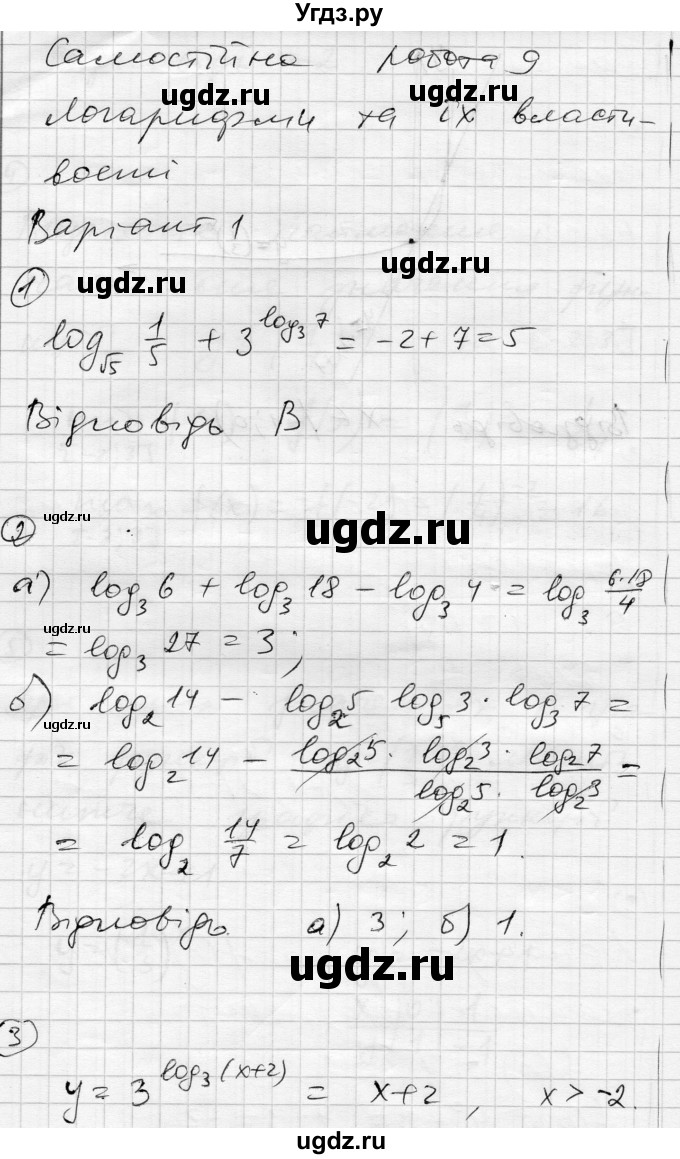 Угдз.ру
Самостійна робота 9
ugdz.ru ugdz.ru
Логарифми та їх власти-
вості
Варіант 1
ugdz.ru ugdz.ru
① log_√5 1/5 + 3^log_3 7 = -2 + 7 = 5
Відповідь В.
② ugdz.ru ugdz.ru
а) log_3 6 + log_3 18 - log_3 4 = log_3 6·18/4
= log_3 27 = 3; ugdz.ru
б) log_2 14 - log_2 5 log_5 3 · log_3 7 =
= log_2 14 - log_2 5 · log_2 3 · log_2 7 / log_2 5 · log_2 3 =
= log_2 14/7 = log_2 2 = 1.
Відповідь а) 3; б) 1.
ugdz.ru ugdz.ru
③
y = 3^log_3 (x+2) = x+2, x > -2.
ugdz.ru